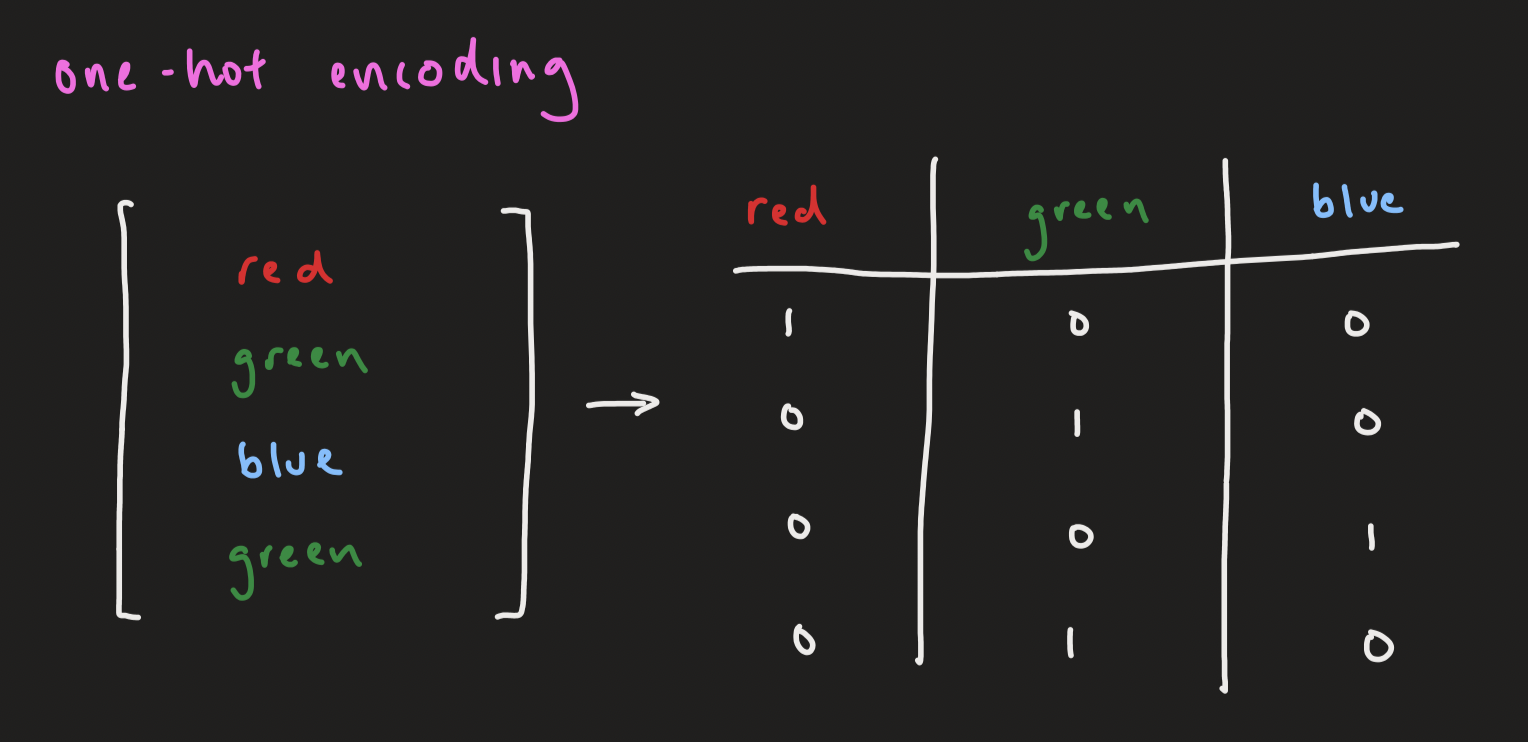 one-hot encoding
red
green
blue
green
red green blue
1 0 0
0 1 0
0 0 1
0 1 0